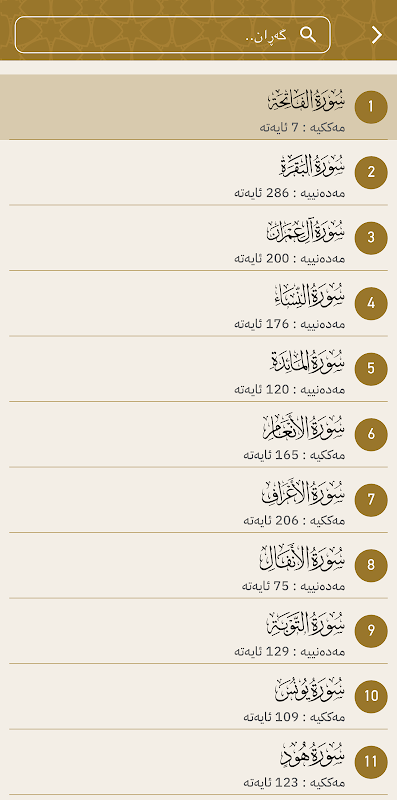 گەڕان..
1
سُورَةُ الفَاتِحَةِ
مەککیە : 7 ئایەتە
2
سُورَةُ البَقَرَةِ
مەدەنییە : 286 ئایەتە
3
سُورَةُ آلِ عِمۡرَانَ
مەدەنییە : 200 ئایەتە
4
سُورَةُ النِّسَاءِ
مەدەنییە : 176 ئایەتە
5
سُورَةُ المَائـِدَةِ
مەدەنییە : 120 ئایەتە
6
سُورَةُ الأَنۡعَامِ
مەککیە : 165 ئایەتە
7
سُورَةُ الأَعۡرَافِ
مەککیە : 206 ئایەتە
8
سُورَةُ الأَنفَالِ
مەدەنییە : 75 ئایەتە
9
سُورَةُ التَّوۡبَةِ
مەدەنییە : 129 ئایەتە
10
سُورَةُ يُونُسَ
مەککیە : 109 ئایەتە
11
سُورَةُ هُودٍ
مەککیە : 123 ئایەتە